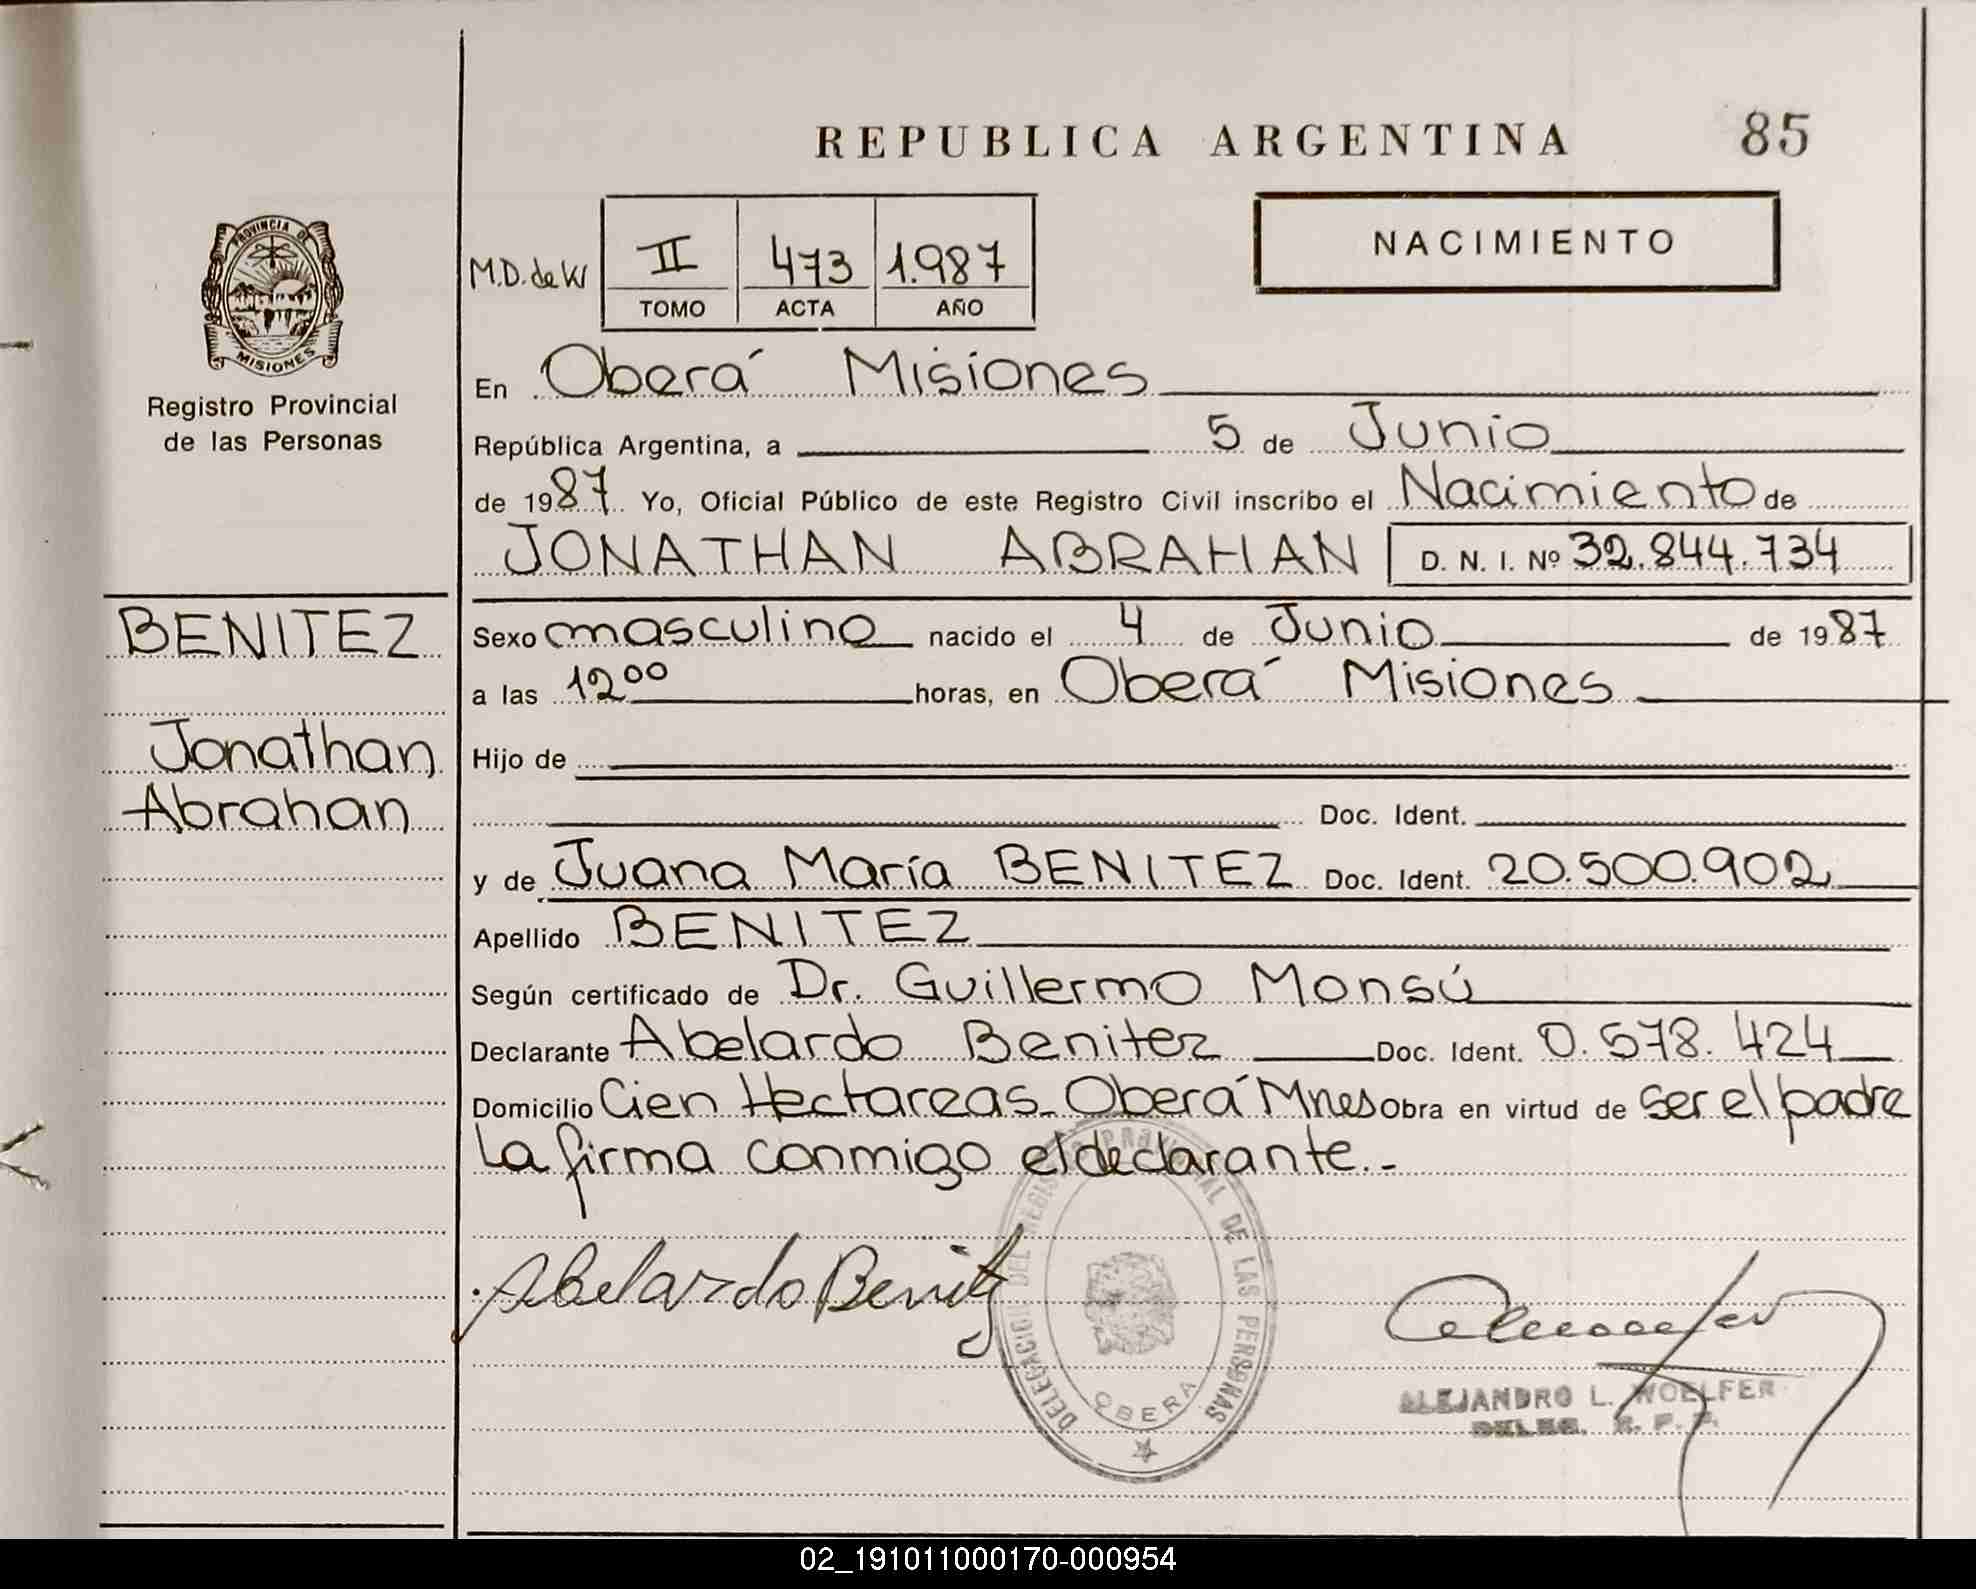 REPUBLICA ARGENTINA 85
PROVINCIA DE
MISIONES
Registro Provincial
de las Personas
M.D. de W
II 473 1.987
TOMO ACTA AÑO
NACIMIENTO
En Oberá Misiones
República Argentina, a 5 de Junio
de 1987 Yo, Oficial Público de este Registro Civil inscribo el Nacimiento de
JONATHAN ABRAHAN D. N. I. Nº 32.844.734
BENITEZ
Jonathan
Abrahan
Sexo masculino nacido el 4 de Junio de 1987
a las 12⁰⁰ horas, en Oberá Misiones
Hijo de
Doc. Ident.
y de Juana María BENITEZ Doc. Ident. 20.500.902
Apellido BENITEZ
Según certificado de Dr. Guillermo Monsú
Declarante Abelardo Benitez Doc. Ident. 0.578.424
Domicilio Cien Hectareas_ Oberá Mnes Obra en virtud de ser el padre
La firma conmigo el declarante.-
Abelardo Benitez
DELEGACION DEL REGISTRO PROVINCIAL DE LAS PERSONAS
OBERA
ALEJANDRO L. WOELFER
DELEG. R. P. P.
02_191011000170-000954